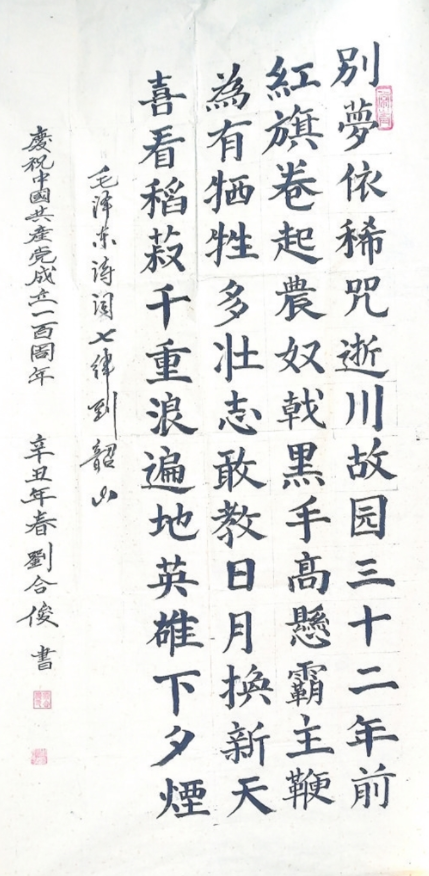 别夢依稀咒逝川故园三十二年前
紅旗卷起農奴戟黑手高懸霸主鞭
為有牺牲多壮志敢教日月换新天
喜看稻菽千重浪遍地英雄下夕煙
毛泽东诗词七律到韶山
慶祝中國共産党成立一百周年 辛丑年春劉合俊書